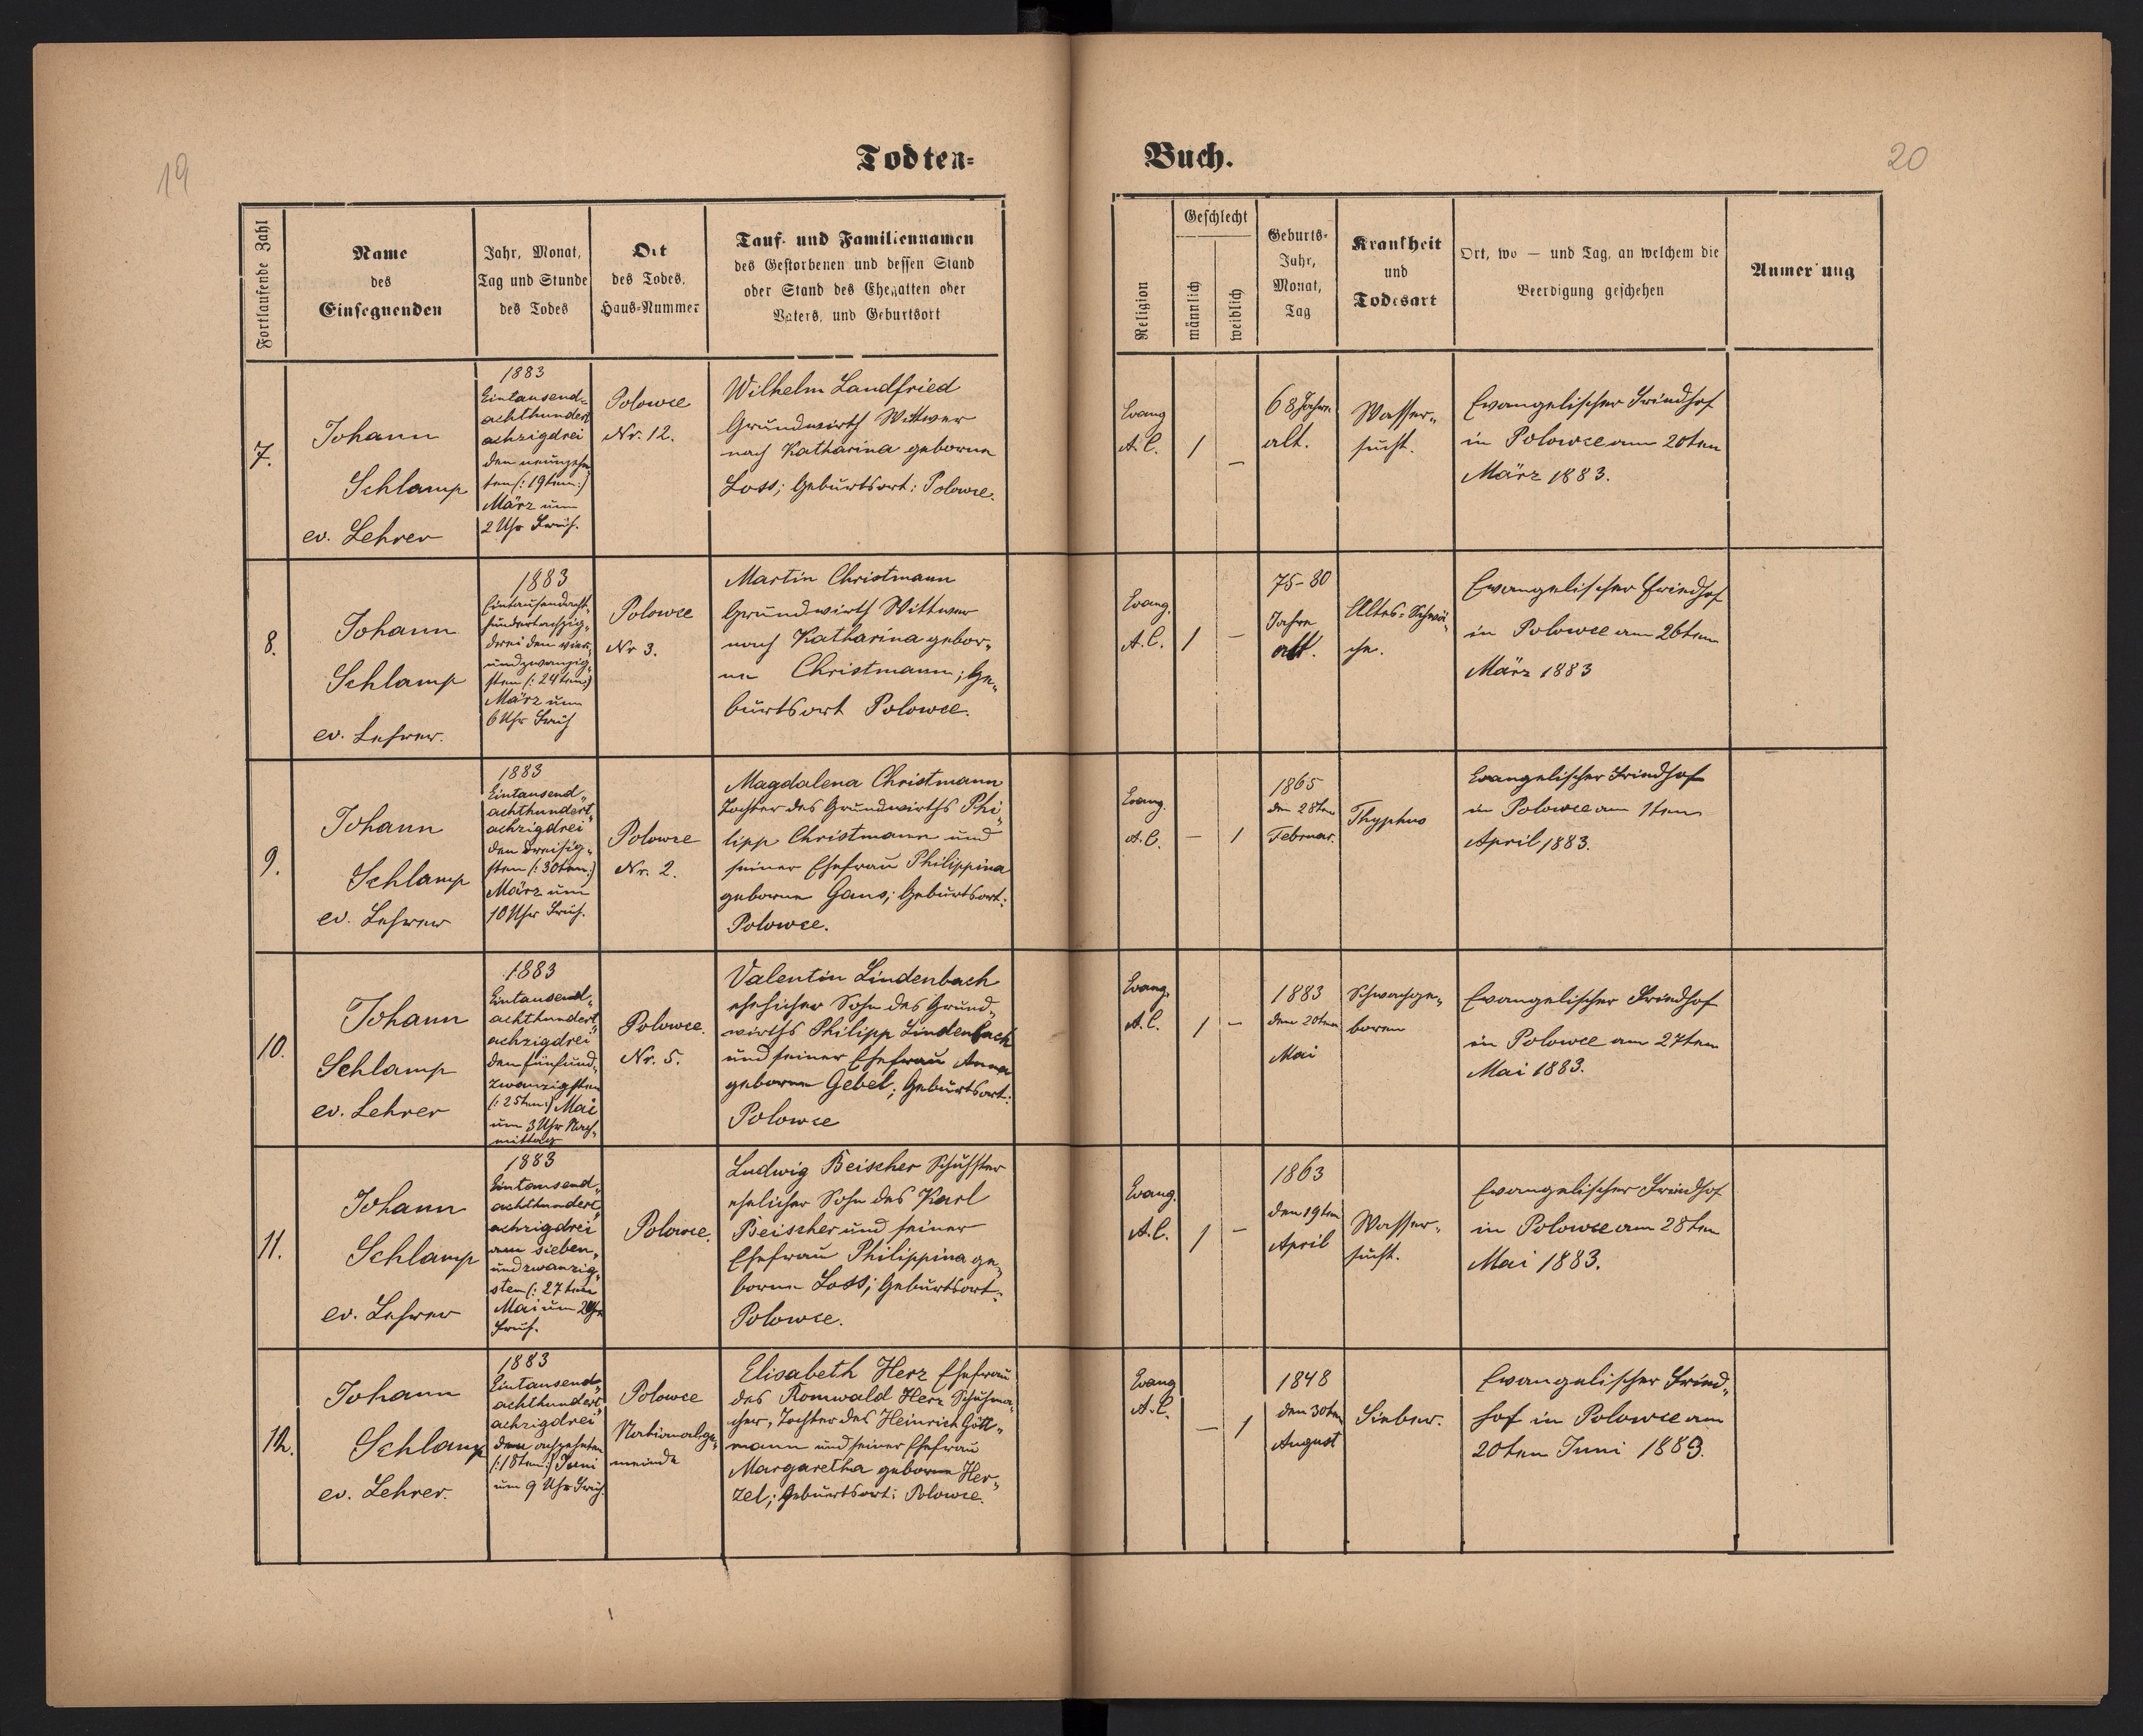 19
Todten=
Buch.
20
Fortlaufende Zahl
Name
des
Einsegnenden
Jahr, Monat,
Tag und Stunde
des Todes
Ort
des Todes,
Haus=Nummer
Tauf- und Familiennamen
des Gestorbenen und dessen Stand
oder Stand des Ehegatten oder
Vaters, und Geburtsort
Religion
Geschlecht
männlich
weiblich
Geburts-
Jahr,
Monat,
Tag
Krankheit
und
Todesart
Ort, wo — und Tag, an welchem die
Beerdigung geschehen
Anmer ung
7.
Johann
Schlamp
ev. Lehrer
1883
Eintausend=
achthundert
achzigdrei
den neunzehn
ten (: 19ten :)
März um
2 Uhr Früh.
Polowce
Nr. 12.
Wilhelm Landfried
Grundwirth Wittwer
nach Katharina geborne
Loss; Geburtsort: Polowce.
Evang
A. C.
1
–
68 Jahre
alt.
Wasser„
sucht.
Evangelischer Friedhof
in Polowce am 20ten
März 1883.
8.
Johann
Schlamp
ev. Lehrer.
1883
Eintausendacht„
hundertachzig„
drei den vier„
undzwanzig„
sten (: 24ten :)
März um
6 Uhr Früh
Polowce
Nr 3.
Martin Christmann
Grundwirth Wittwer
nach Katharina gebor„
ne Christmann; Ge„
burtsort Polowce.
Evang.
A. C.
1
–
75-80
Jahre
alt.
Altes=Schwä„
che.
Evangelischer Friedhof
in Polowce am 26ten
März 1883
9.
Johann
Schlamp
ev. Lehrer
1883
Eintausend„
achthundert„
achzigdrei
den dreisig„
sten (: 30ten :)
März um
10 Uhr Früh.
Polowce
Nr. 2.
Magdalena Christmann
Tochter des Grundwirths Phi„
lipp Christmann und
seiner Ehefrau Philippina
geborne Gans; Geburtsort:
Polowce.
Evang.
A. C.
–
1
1865
den 28ten
Februar.
Thyphus
Evangelischer Friedhof
in Polowce am 1ten
April 1883.
10.
Johann
Schlamp
ev. Lehrer
1883
Eintausend„
achthundert„
achzigdrei
den fünfund„
zwanzigsten
(: 25ten :) Mai
um 3 Uhr Nach„
mittag
Polowce.
Nr. 5.
Valentin Lindenbach
ehelicher Sohn des Grund„
wirths Philipp Lindenbach
und seiner Ehefrau Anna
geborne Gebel; Geburtsort:
Polowce
Evang.
A. C.
1
–
1883
den 20ten
Mai
Schwachge„
boren
Evangelischer Friedhof
in Polowce am 27ten
Mai 1883.
11.
Johann
Schlamp
ev. Lehrer
1883
Eintausend„
achthundert„
achzigdrei
am sieben„
undzwanzig„
sten (: 27ten
Mai um 2 Uhr
Früh.
Polowce.
Ludwig Beischer Schuster
ehelicher Sohn des Karl
Beischer und seiner
Ehefrau Philippina ge„
borne Loss; Geburtsort:
Polowce.
Evang.
A. C.
1
–
1863
den 19ten
April
Wasser„
sucht.
Evangelischer Friedhof
in Polowce am 28ten
Mai 1883.
12.
Johann
Schlamp
ev. Lehrer.
1883
Eintausend„
achthundert„
achzigdrei
den achzehnten
(: 18ten :) Juni
um 9 Uhr Früh.
Polowce
Nationalge„
meinde
Elisabeth Herz Ehefrau
des Romwald Herz Schuhma„
cher, Tochter des Heinrich Gött„
mann und seiner Ehefrau
Margaretha geborne Her„
zel; Geburtsort: Polowce.
Evang
A. C.
–
1
1848
den 30ten
August
Fieber.
Evangelischer Fried„
hof in Polowce am
20ten Juni 1883.